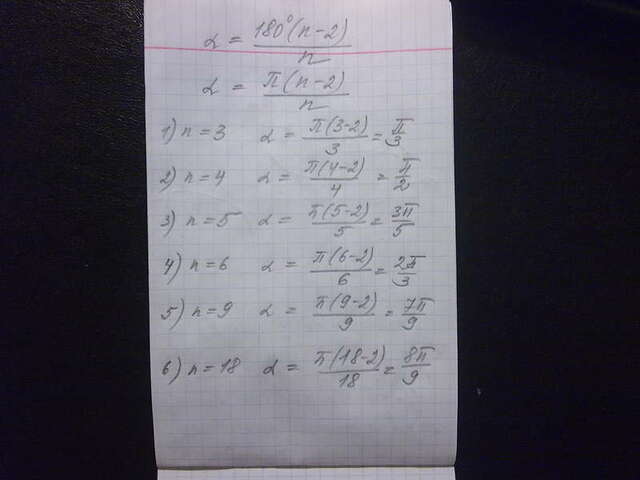 α = 180°(n-2)/n
α = π(n-2)/n
1) n=3 α = π(3-2)/3 = π/3
2) n=4 α = π(4-2)/4 = π/2
3) n=5 α = π(5-2)/5 = 3π/5
4) n=6 α = π(6-2)/6 = 2π/3
5) n=9 α = π(9-2)/9 = 7π/9
6) n=18 α = π(18-2)/18 = 8π/9